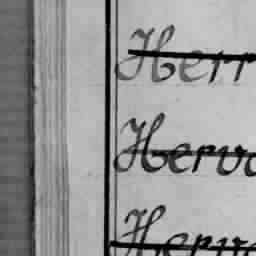 Herr
Hervo
Herve